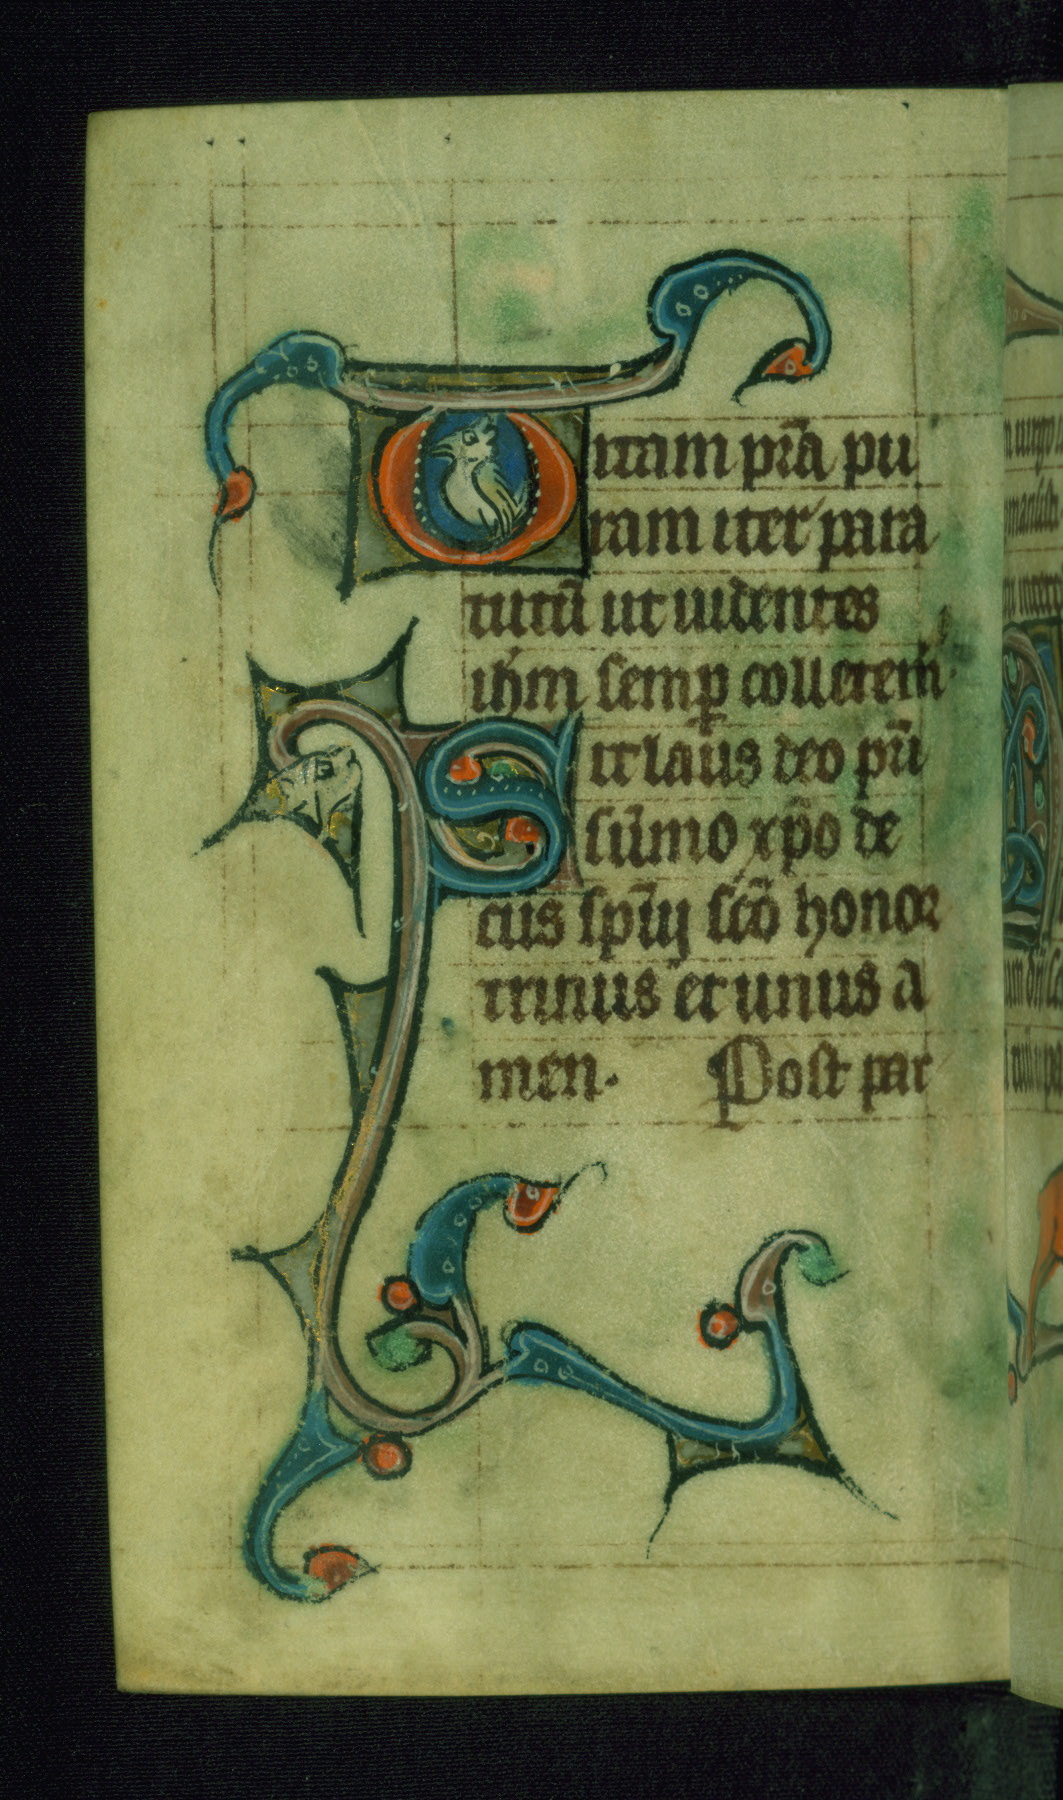 Uitam pr̄a pu
ram iter para
tutū ut uidentes
ih̄m semꝑ colleter̄m
Sit laus deo pr̄i
sūmo xp̄o de
cus sp̄ui sc̄o honor
trinus et unus a
men. Post par